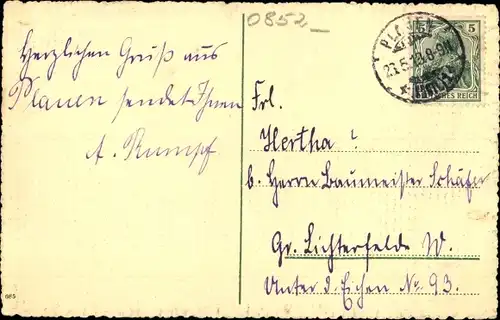 0852
Herzlichen Gruß aus
Plauen sendet Ihnen
A. Rumpf
PLAUEN
23.5.13.8-9N.
5
5
DEUTSCHES REICH
Frl.
Hertha?
b. Herrn Baumeister Schäfer
Gr. Lichterfelde W.
Unter d. Eichen No 93.